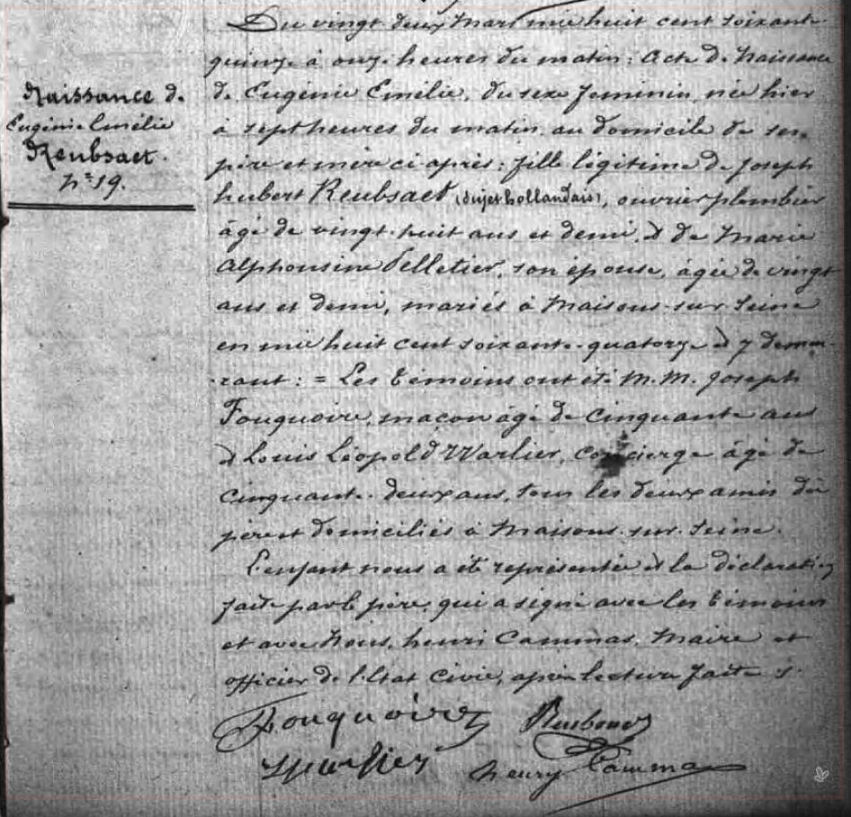 Naissance de
Eugénie Emélie
Reubsaet.
N° 19.
Du vingt deux Mars mil huit cent soixante-
quinze à onze heures du matin : Acte de Naissance
de Eugénie Emélie, du sexe féminin, née hier
à sept heures du matin au domicile de ses
père et mère ci-après ; fille légitime de Joseph
hubert Reubsaet (sujet hollandais), ouvrier plombier
âgé de vingt-huit ans et demi, et de Marie
Alphonsine Pelletier, son épouse, âgée de vingt
ans et demi, mariés à Maisons-sur-Seine
en mil huit cent soixante-quatorze et y demeu-
-rant : = Les témoins ont été M.M. Joseph
Fouquoire, maçon âgé de cinquante ans
et Louis Léopold Warlier, concierge âgé de
cinquante-deux ans, tous les deux amis du
père et domiciliés à Maisons-sur-Seine.
L'enfant nous a été représentée et la déclaration
faite par le père, qui a signé avec les témoins
et avec Nous, henri Cammas, Maire et
officier de l'Etat Civil, après lecture faite
Fouquoire
henry Camma